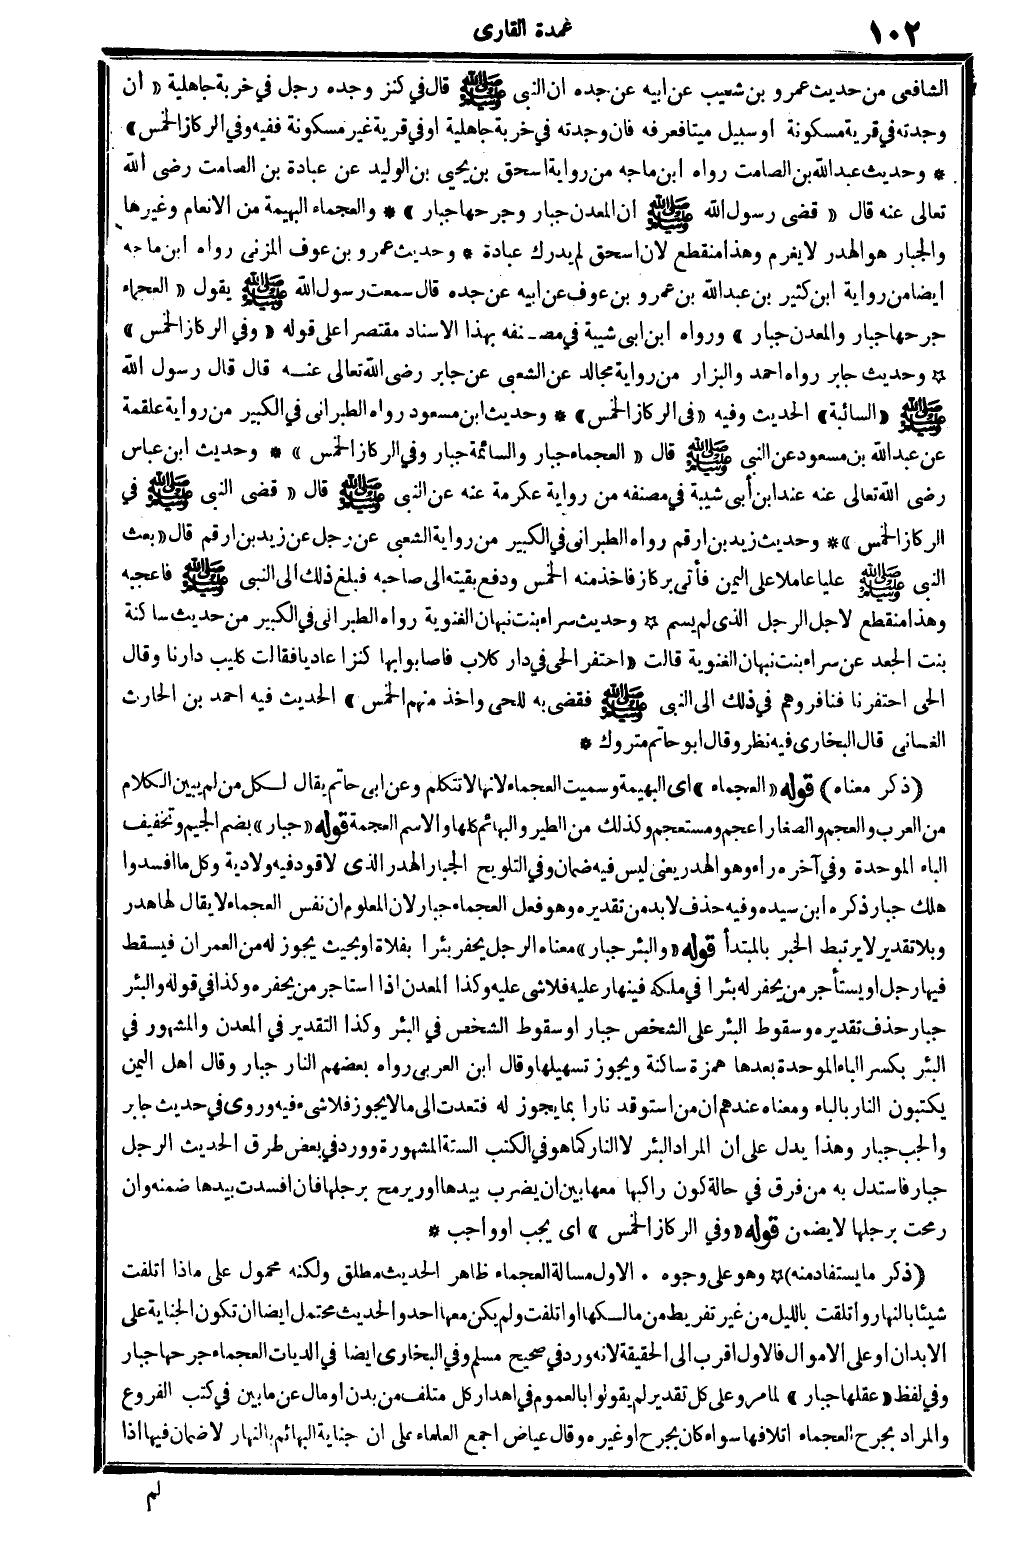 ١٠٢
عمدة القارى
الشافعى من حديث عمرو بن شعيب عن ابيه عن جده ان النبى ﷺ قال في كنز وجده رجل في خربة جاهلية « ان
وجدته في قرية مسكونة او سبيل ميتا فعرفه فان وجدته في خربة جاهلية او في قرية غير مسكونة ففيه وفي الركاز الخمس »
* وحديث عبد الله بن الصامت رواه ابن ماجه من رواية اسحق بن يحيى بن الوليد عن عبادة بن الصامت رضى الله
تعالى عنه قال « قضى رسول الله ﷺ ان المعدن جبار وجرحها جبار » * والعجماء البهيمة من الانعام وغيرها
والجبار هو الهدر لا يغرم وهذا منقطع لان اسحق لم يدرك عبادة * وحديث عمرو بن عوف المزنى رواه ابن ماجه
ايضا من رواية ابن كثير بن عبد الله بن عمرو بن عوف عن ابيه عن جده قال سمعت رسول الله ﷺ يقول « العجماء
جرحها جبار والمعدن جبار » ورواه ابن ابى شيبة في مصنفه بهذا الاسناد مقتصرا على قوله « وفي الركاز الخمس »
* وحديث جابر رواه احمد والبزار من رواية مجالد عن الشعبى عن جابر رضى الله تعالى عنه قال قال رسول الله
ﷺ «السائبة» الحديث وفيه «فى الركاز الخمس» * وحديث ابن مسعود رواه الطبرانى في الكبير من رواية علقمة
عن عبد الله بن مسعود عن النبى ﷺ قال « العجماء جبار والسائمة جبار وفي الركاز الخمس » * وحديث ابن عباس
رضى الله تعالى عنه عند ابن أبى شيبة في مصنفه من رواية عكرمة عنه عن النبى ﷺ قال « قضى النبى ﷺ في
الركاز الخمس »* وحديث زيد بن ارقم رواه الطبرانى في الكبير من رواية الشعبى عن رجل عن زيد بن ارقم قال « بعث
النبى ﷺ عليا عاملا على اليمن فأتى بركاز فاخذ منه الخمس ودفع بقيته الى صاحبه فبلغ ذلك الى النبى ﷺ فاعجبه
وهذا منقطع لاجل الرجل الذى لم يسم * وحديث سراء بنت نبهان الغنوية رواه الطبرانى في الكبير من حديث ساكنة
بنت الجعد عن سراء بنت نبهان الغنوية قالت « احتفر الحى في دار كلاب فاصابوا بها كنزا عاديا فقالت كليب دارنا وقال
الحى احتفرنا فنافروهم في ذلك الى النبى ﷺ فقضى به للحى واخذ منهم الخمس » الحديث فيه احمد بن الحارث
الغسانى قال البخارى فيه نظر وقال ابو حاتم متروك *
(ذكر معناه) قوله « العجماء » اى البهيمة وسميت العجماء لانها لا تتكلم وعن ابى حاتم يقال لكل من لم يبين الكلام
من العرب والعجم والصغار اعجم ومستعجم وكذلك من الطير والبهائم كلها والاسم العجمة قوله « جبار » بضم الجيم وتخفيف
الباء الموحدة وفي آخره راء وهو الهدر يعنى ليس فيه ضمان وفي التلويح الجبار الهدر الذى لا قود فيه ولا دية وكل ما افسدوا
هلك جبار ذكره ابن سيده وفيه حذف لابد من تقديره وهو فعل العجماء جبار لان المعلوم ان نفس العجماء لا يقال لها هدر
وبلا تقدير لا يرتبط الخبر بالمبتدأ قوله « والبئر جبار » معناه الرجل يحفر بئرا بفلاة او بحيث يجوز له من العمران فيسقط
فيها رجل او يستأجر من يحفر له بئرا في ملكه فينهار عليه فلاشى عليه وكذا المعدن اذا استاجر من يحفره وكذا في قوله والبئر
جبار حذف تقديره وسقوط البئر على الشخص جبار او سقوط الشخص في البئر وكذا التقدير في المعدن والمشهور في
البئر بكسر الباء الموحدة بعدها همزة ساكنة ويجوز تسهيلها وقال ابن العربى رواه بعضهم النار جبار وقال اهل اليمن
يكتبون النار بالباء ومعناه عندهم ان من استوقد نارا بما يجوز له فتعدت الى ما لا يجوز فلاشىء فيه وروى في حديث جابر
والجب جبار وهذا يدل على ان المراد البئر لا النار كما هو في الكتب الستة المشهورة وورد في بعض طرق الحديث الرجل
جبار فاستدل به من فرق في حالة كون راكبها معها بين ان يضرب بيدها او يرمح برجلها فان افسدت بيدها ضمنه وان
رمحت برجلها لا يضمن قوله « وفي الركاز الخمس » اى يجب او واجب *
(ذكر ما يستفاد منه)* وهو على وجوه . الاول مسالة العجماء ظاهر الحديث مطلق ولكنه محمول على ماذا اتلفت
شيئا بالنهار وأتلفت بالليل من غير تفريط من مالكها او اتلفت ولم يكن معها احد والحديث محتمل ايضا ان تكون الجناية على
الابدان او على الاموال فالاول اقرب الى الحقيقة لانه ورد في صحيح مسلم وفي البخارى ايضا في الديات العجماء جرحها جبار
وفي لفظ « عقلها جبار » لما مر وعلى كل تقدير لم يقولوا بالعموم في اهدار كل متلف من بدن او مال عن ما بين في كتب الفروع
والمراد بجرح العجماء اتلافها سواء كان بجرح او غيره وقال عياض اجمع العلماء على ان جناية البهائم بالنهار لا ضمان فيها اذا
لم